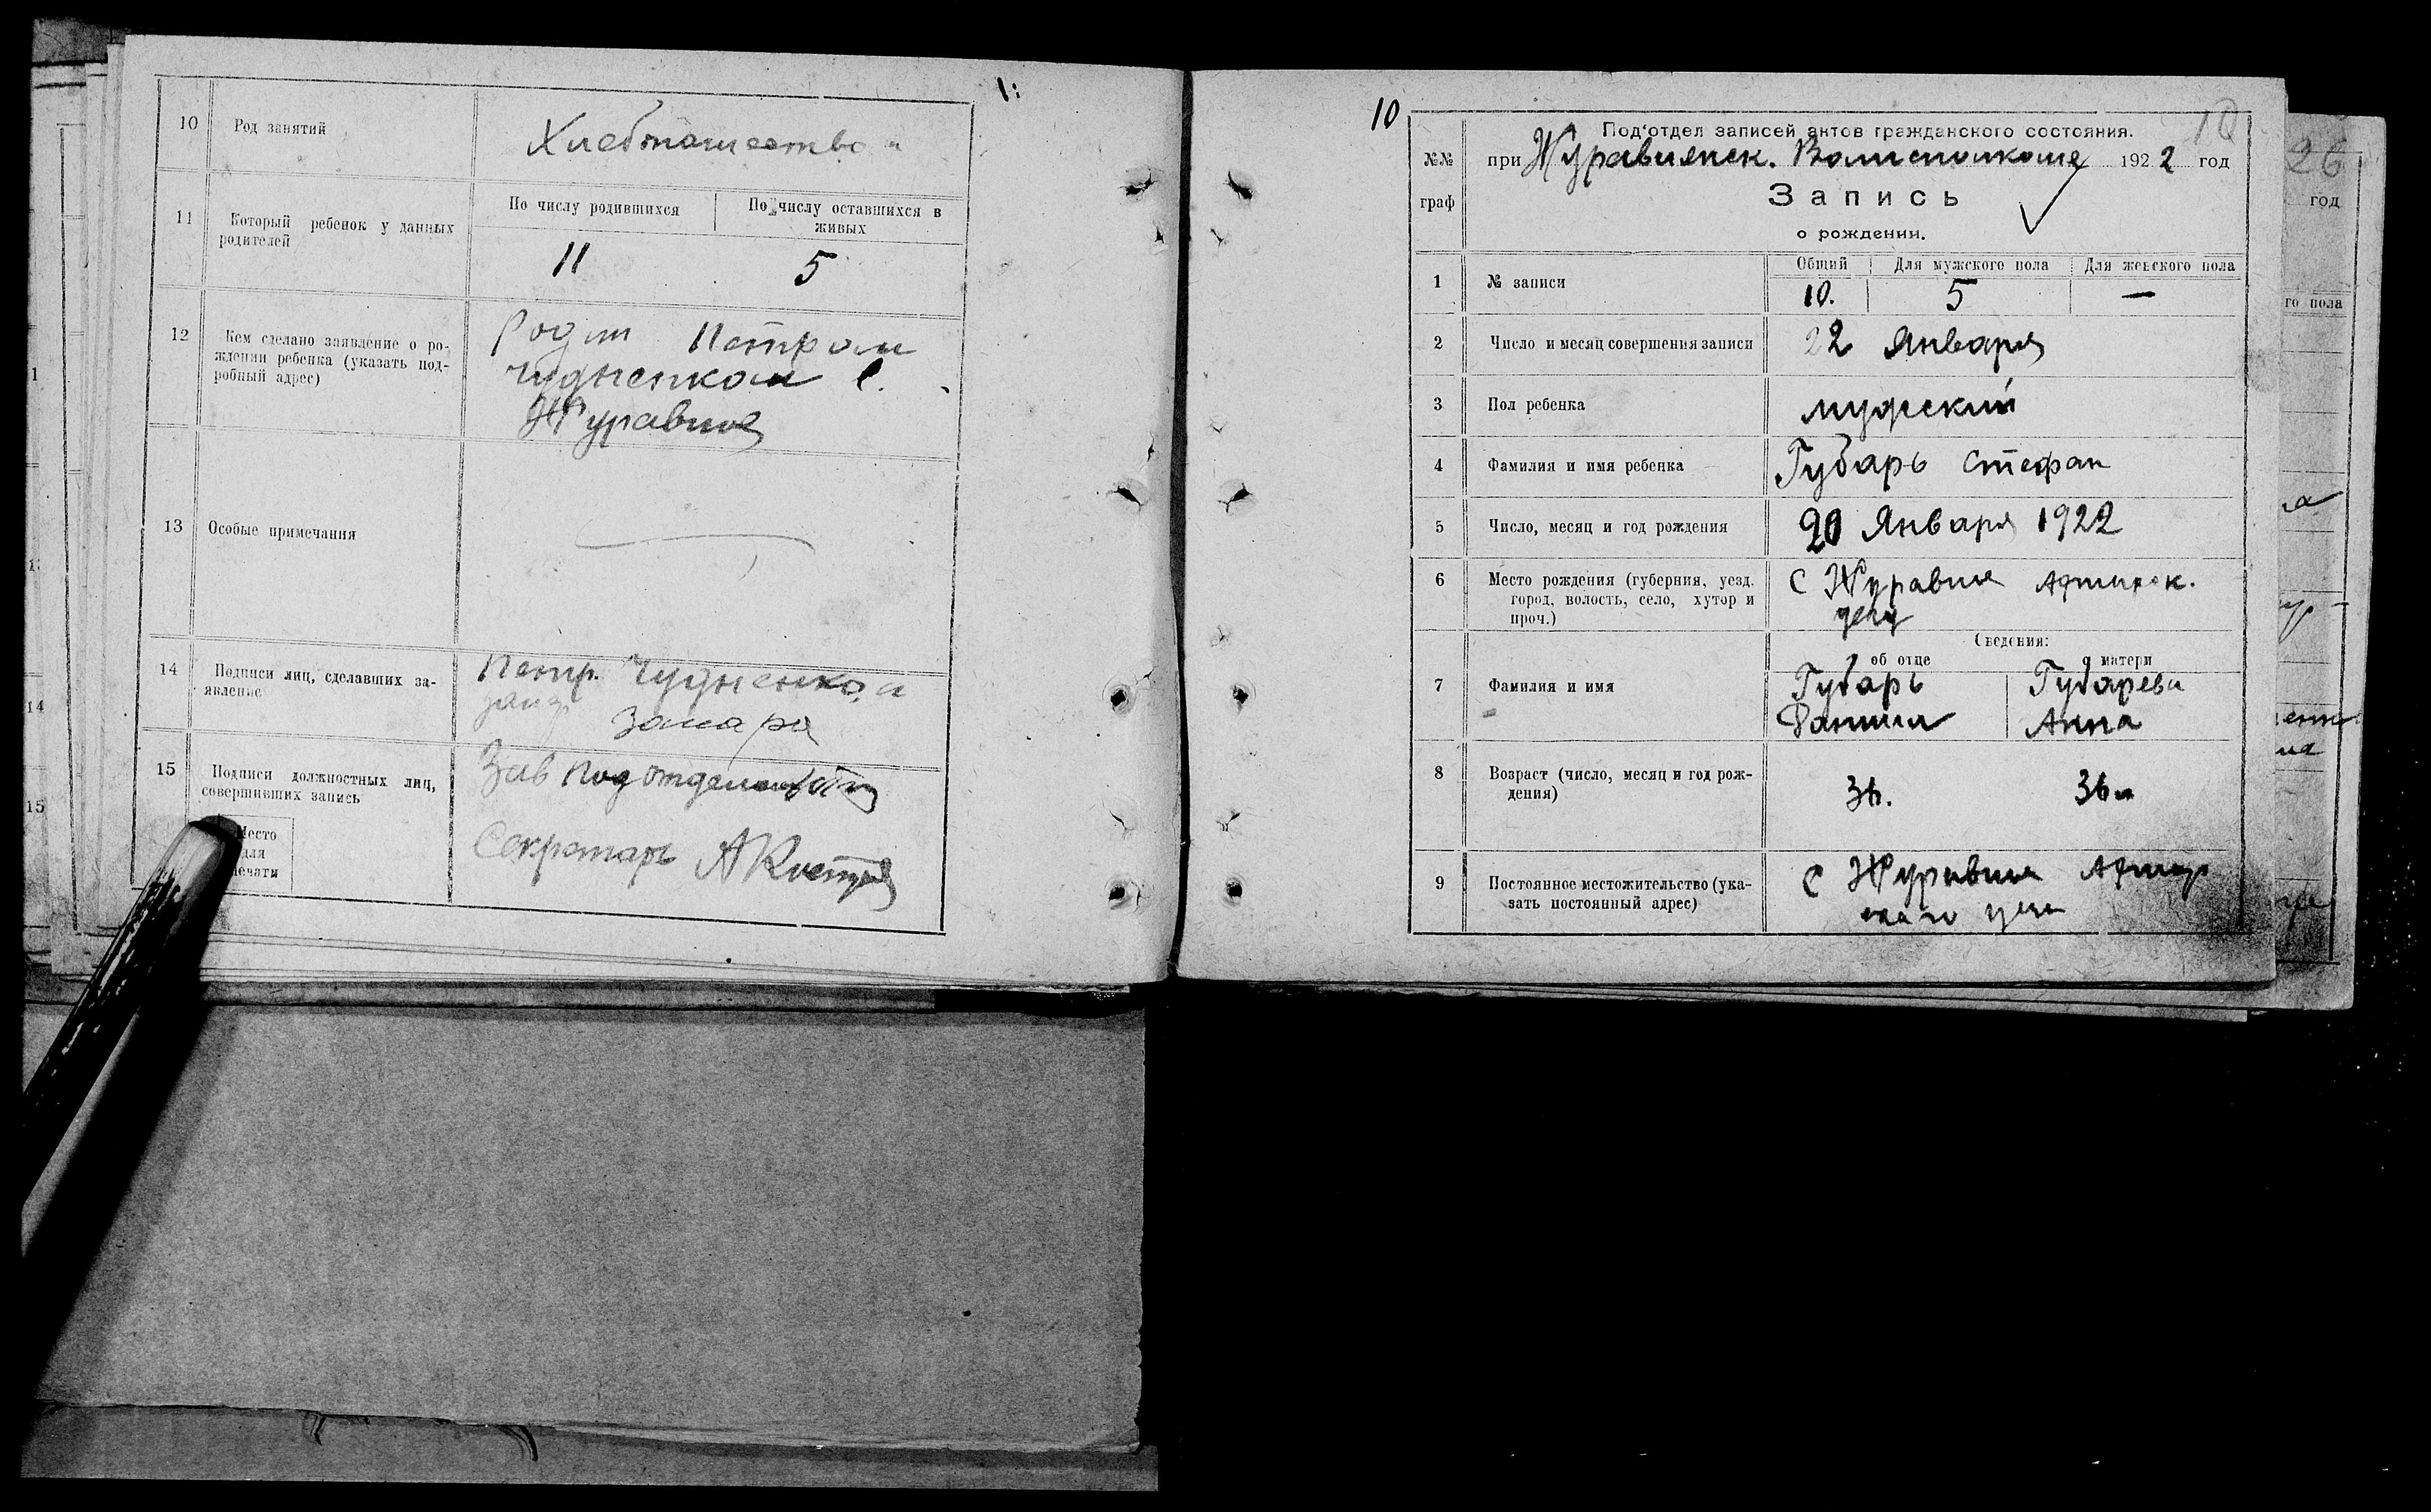 1:
10
Род занятий
Хлебопашество
11
Который ребенок у данных
родителей
По числу родившихся
По числу оставшихся в
живых
11
5
12
Кем сделано заявление о ро-
ждении ребенка (указать под-
робный адрес)
Родит Петром
Чудненком с.
Журавне
13
Особые примечания
14
Подписи лиц, сделавших за-
явление
Петр. Чудненко, а
15
Подписи должностных лиц,
совершивших запись
Зав подотделом
Секретарь
Место
для
печати
10
10
Под'отдел записей актов гражданского состояния.
№№
граф
при Журавнянск. Волисполкоме 1922 год
Запись
о рождении.
1
№ записи
Общий
Для мужского пола
Для женского пола
10.
5
—
2
Число и месяц совершения записи
22 Января
3
Пол ребенка
мужский
4
Фамилия и имя ребенка
Губарь Стефан
5
Число, месяц и год рождения
20 Января 1922
6
Место рождения (губерния, уезд.
город, волость, село, хутор и
проч.)
С Журавне
Сведения:
об отце
о матери
7
Фамилия и имя
Губарь
Даниил
Губарева
Анна
8
Возраст (число, месяц и год рож-
дения)
36.
36
9
Постоянное местожительство (ука-
зать постоянный адрес)
С Журавне
26
год
го пола
1
14
15